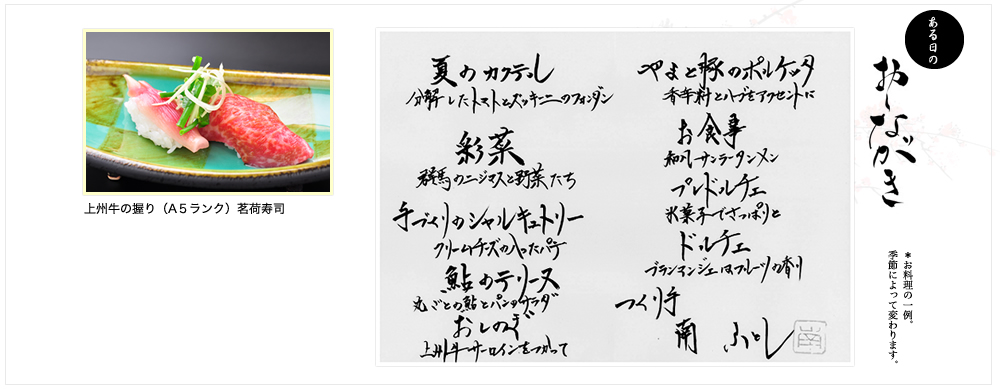 ある日の
おしながき
＊お料理の一例。
季節によって変わります。
夏のカクテル
分解したトマトとズッキーニのフォンダン
彩菜
群馬のニジマスと野菜たち
手づくりのシャルキュトリー
クリームチーズの入ったパテ
鮎のテリーヌ
丸ごとの鮎とパンのサラダ
おしのぎ
上州牛サーロインをつかって
やまと豚のポルケッタ
香辛料とハーブをアクセントに
お食事
和風サンラータンメン
プレドルチェ
氷菓子でさっぱりと
ドルチェ
ブランマンジェはフルーツの香り
つくり手
南 ふとし
南
上州牛の握り（A５ランク）茗荷寿司